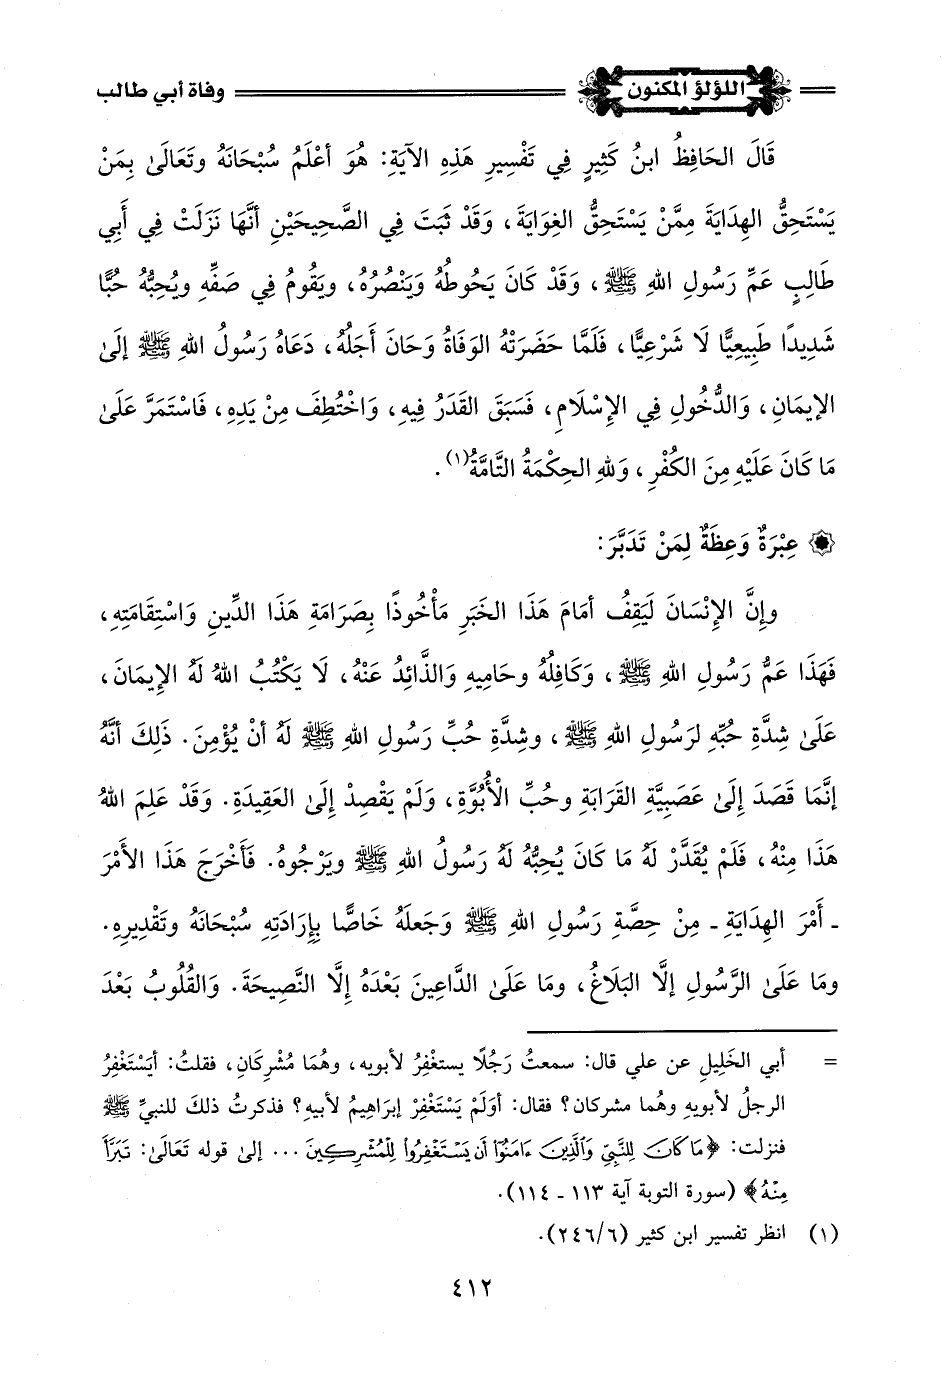 اللؤلؤ المكنون
وفاة أبي طالب
قَالَ الحَافِظُ ابنُ كَثِيرٍ فِي تَفْسِيرِ هَذِهِ الآيَةِ: هُوَ أعْلَمُ سُبْحَانَهُ وتَعَالَىٰ بِمَنْ
يَسْتَحِقُّ الهِدَايَةَ مِمَّنْ يَسْتَحِقُّ الغِوَايَةَ، وَقَدْ ثَبَتَ فِي الصَّحِيحَيْنِ أنَّهَا نَزَلَتْ فِي أَبِي
طَالِبٍ عَمِّ رَسُولِ اللهِ ﷺ، وَقَدْ كَانَ يَحُوطُهُ وَيَنْصُرُهُ، ويَقُومُ فِي صَفِّهِ ويُحِبُّهُ حُبًّا
شَدِيدًا طَبِيعِيًّا لَا شَرْعِيًّا، فَلَمَّا حَضَرَتْهُ الوَفَاةُ وَحَانَ أجَلُهُ، دَعَاهُ رَسُولُ اللهِ ﷺ إلَىٰ
الإيمَانِ، وَالدُّخُولِ فِي الإسْلَامِ، فَسَبَقَ القَدَرُ فِيهِ، وَاخْتُطِفَ مِنْ يَدِهِ، فَاسْتَمَرَّ عَلَىٰ
مَا كَانَ عَلَيْهِ مِنَ الكُفْرِ، وَللهِ الحِكْمَةُ التَّامَّةُ(١).
۞ عِبْرَةٌ وَعِظَةٌ لِمَنْ تَدَبَّرَ:
وإنَّ الإنْسَانَ لَيَقِفُ أمَامَ هَذَا الخَبَرِ مَأْخُوذًا بِصَرَامَةِ هَذَا الدِّينِ وَاسْتِقَامَتِهِ،
فَهَذَا عَمُّ رَسُولِ اللهِ ﷺ، وَكَافِلُهُ وحَامِيهِ وَالذَّائِدُ عَنْهُ، لَا يَكْتُبُ اللهُ لَهُ الإيمَانَ،
عَلَىٰ شِدَّةِ حُبِّهِ لرَسُولِ اللهِ ﷺ، وشِدَّةِ حُبِّ رَسُولِ اللهِ ﷺ لَهُ أنْ يُؤْمِنَ. ذَلِكَ أنَّهُ
إنَّمَا قَصَدَ إلَىٰ عَصَبِيَّةِ القَرَابَةِ وحُبِّ الْأُبُوَّةِ، وَلَمْ يَقْصِدْ إلَىٰ العَقِيدَةِ. وَقَدْ عَلِمَ اللهُ
هَذَا مِنْهُ، فَلَمْ يُقَدَّرْ لَهُ مَا كَانَ يُحِبُّهُ لَهُ رَسُولُ اللهِ ﷺ ويَرْجُوهُ. فَأَخْرَجَ هَذَا الأَمْرَ
ـ أَمْرَ الهِدَايَةِ ـ مِنْ حِصَّةِ رَسُولِ اللهِ ﷺ وَجَعلَهُ خَاصًّا بِإِرَادَتِهِ سُبْحَانَهُ وتَقْدِيرِهِ.
ومَا عَلَىٰ الرَّسُولِ إلَّا البَلَاغُ، ومَا عَلَىٰ الدَّاعِينَ بَعْدَهُ إلَّا النَّصِيحَةَ. وَالقُلُوبُ بَعْدَ
= أبي الخَلِيلِ عن علي قال: سمعتُ رَجُلًا يستغْفِرُ لأبويه، وهُمَا مُشْرِكَانِ، فقلتُ: أيَسْتَغْفِرُ
الرجلُ لأبويهِ وهُما مشركان؟ فقال: أوَلَمْ يَسْتَغْفِرْ إبرَاهِيمُ لأبيهِ؟ فذكرتُ ذلكَ للنبيِّ ﷺ
فنزلت: ﴿مَا كَانَ لِلنَّبِيِّ وَٱلَّذِينَ ءَامَنُوٓا۟ أَن يَسْتَغْفِرُوا۟ لِلْمُشْرِكِينَ ... إلىٰ قوله تَعَالَىٰ: تَبَرَّأَ
مِنْهُ﴾ (سورة التوبة آية ١١٣ ـ ١١٤).
(١) انظر تفسير ابن كثير (٢٤٦/٦).
٤١٢